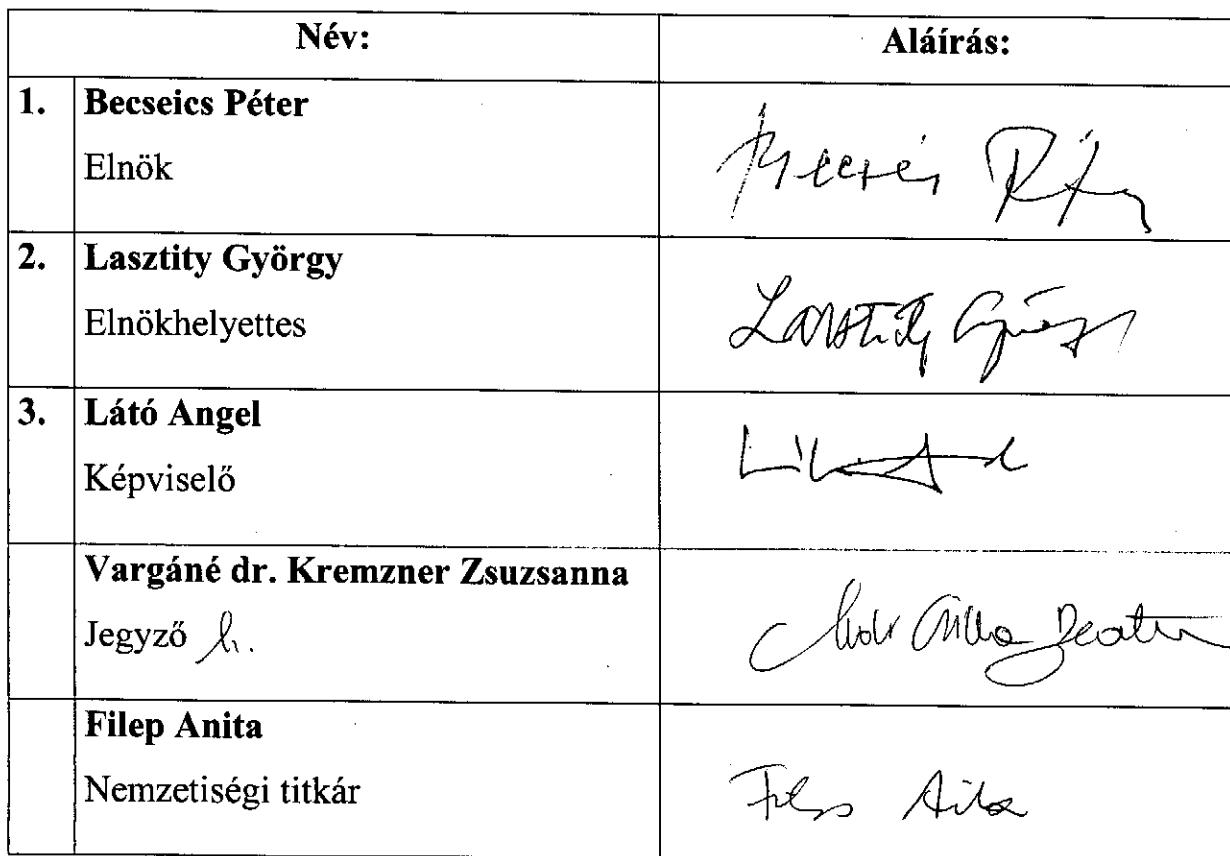 Név: Aláírás:
1. Becseics Péter
Elnök
2. Lasztity György
Elnökhelyettes
Lasztity György
3. Látó Angel
Képviselő
Vargáné dr. Kremzner Zsuzsanna
Jegyző h.
Filep Anita
Nemzetiségi titkár